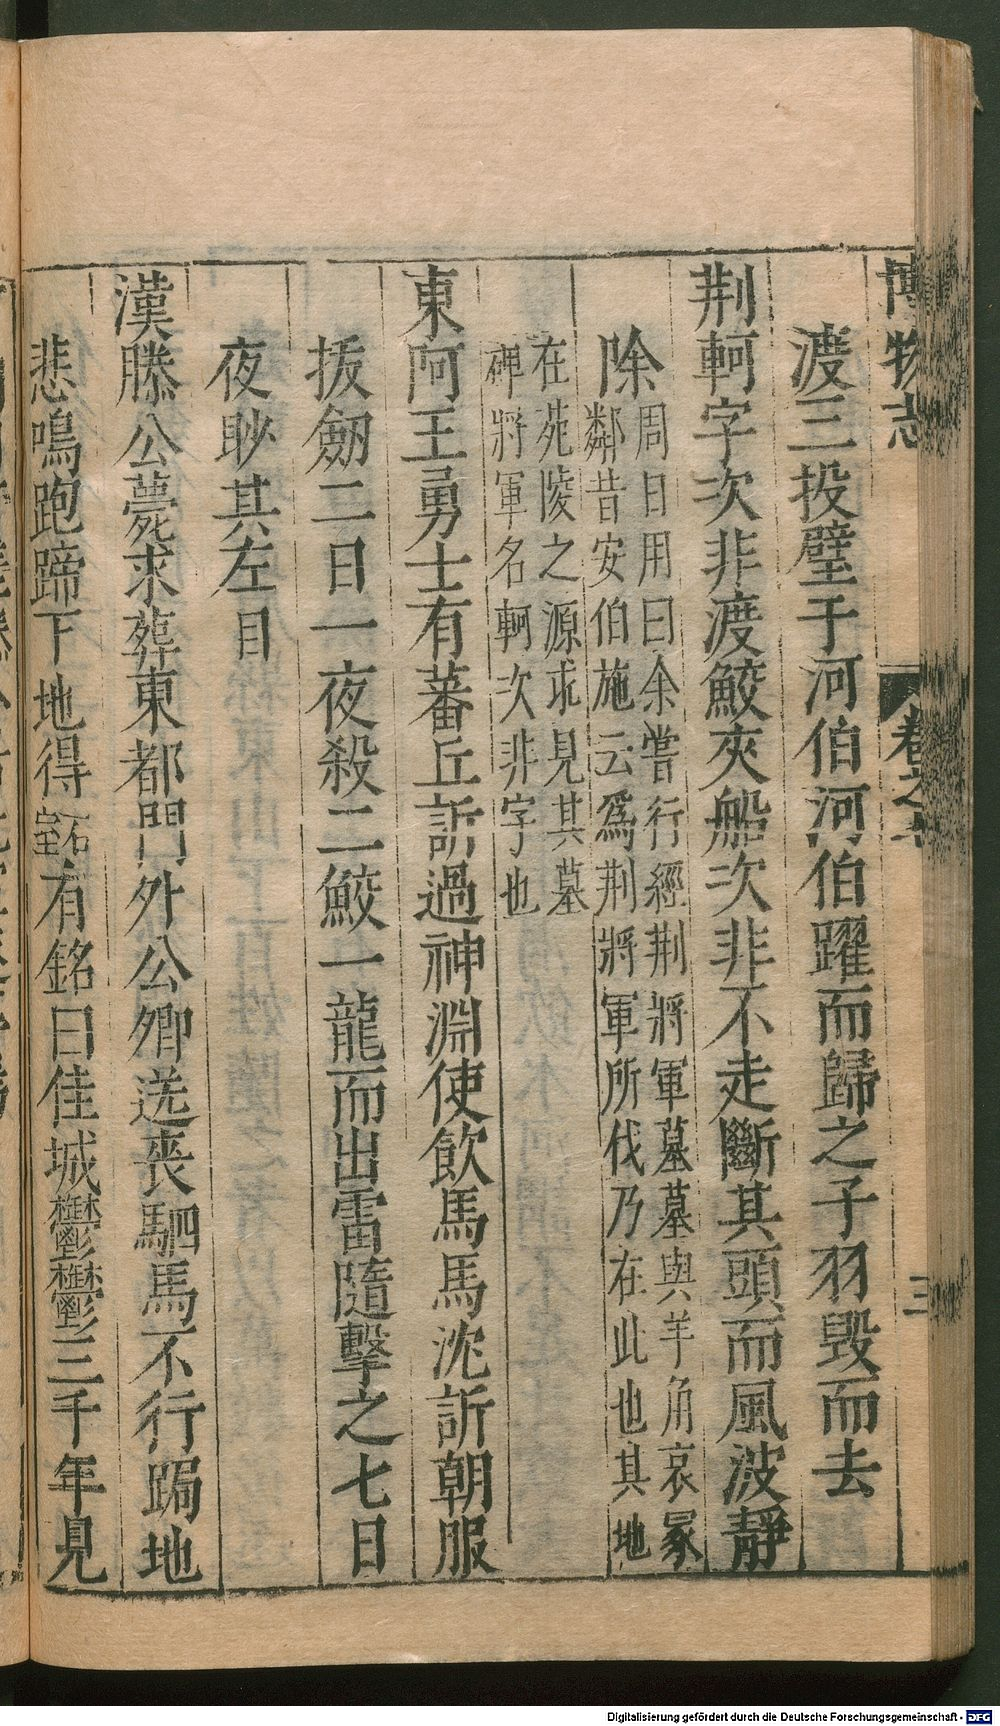 博物志 卷之七 三
渡三投璧于河伯河伯躍而歸之子羽毀而去
荆軻字次非渡鮫夾船次非不走斷其頭而風波靜
除周日用曰余嘗行經荆將軍墓墓與羊角哀冢
鄰昔安伯施云爲荆將軍所伐乃在此也其地
在苑陵之源求見其墓
碑將軍名軻次非字也
東阿王勇士有蕃丘訢過神淵使飲馬馬沈訢朝服
拔劔二日一夜殺二鮫一龍而出雷隨擊之七日
夜眇其左目
漢滕公薨求葬東都門外公卿送喪駟馬不行跼地
悲鳴跑蹄下地得石室有銘曰佳城鬱鬱三千年見
Digitalisierung gefördert durch die Deutsche Forschungsgemeinschaft - DFG